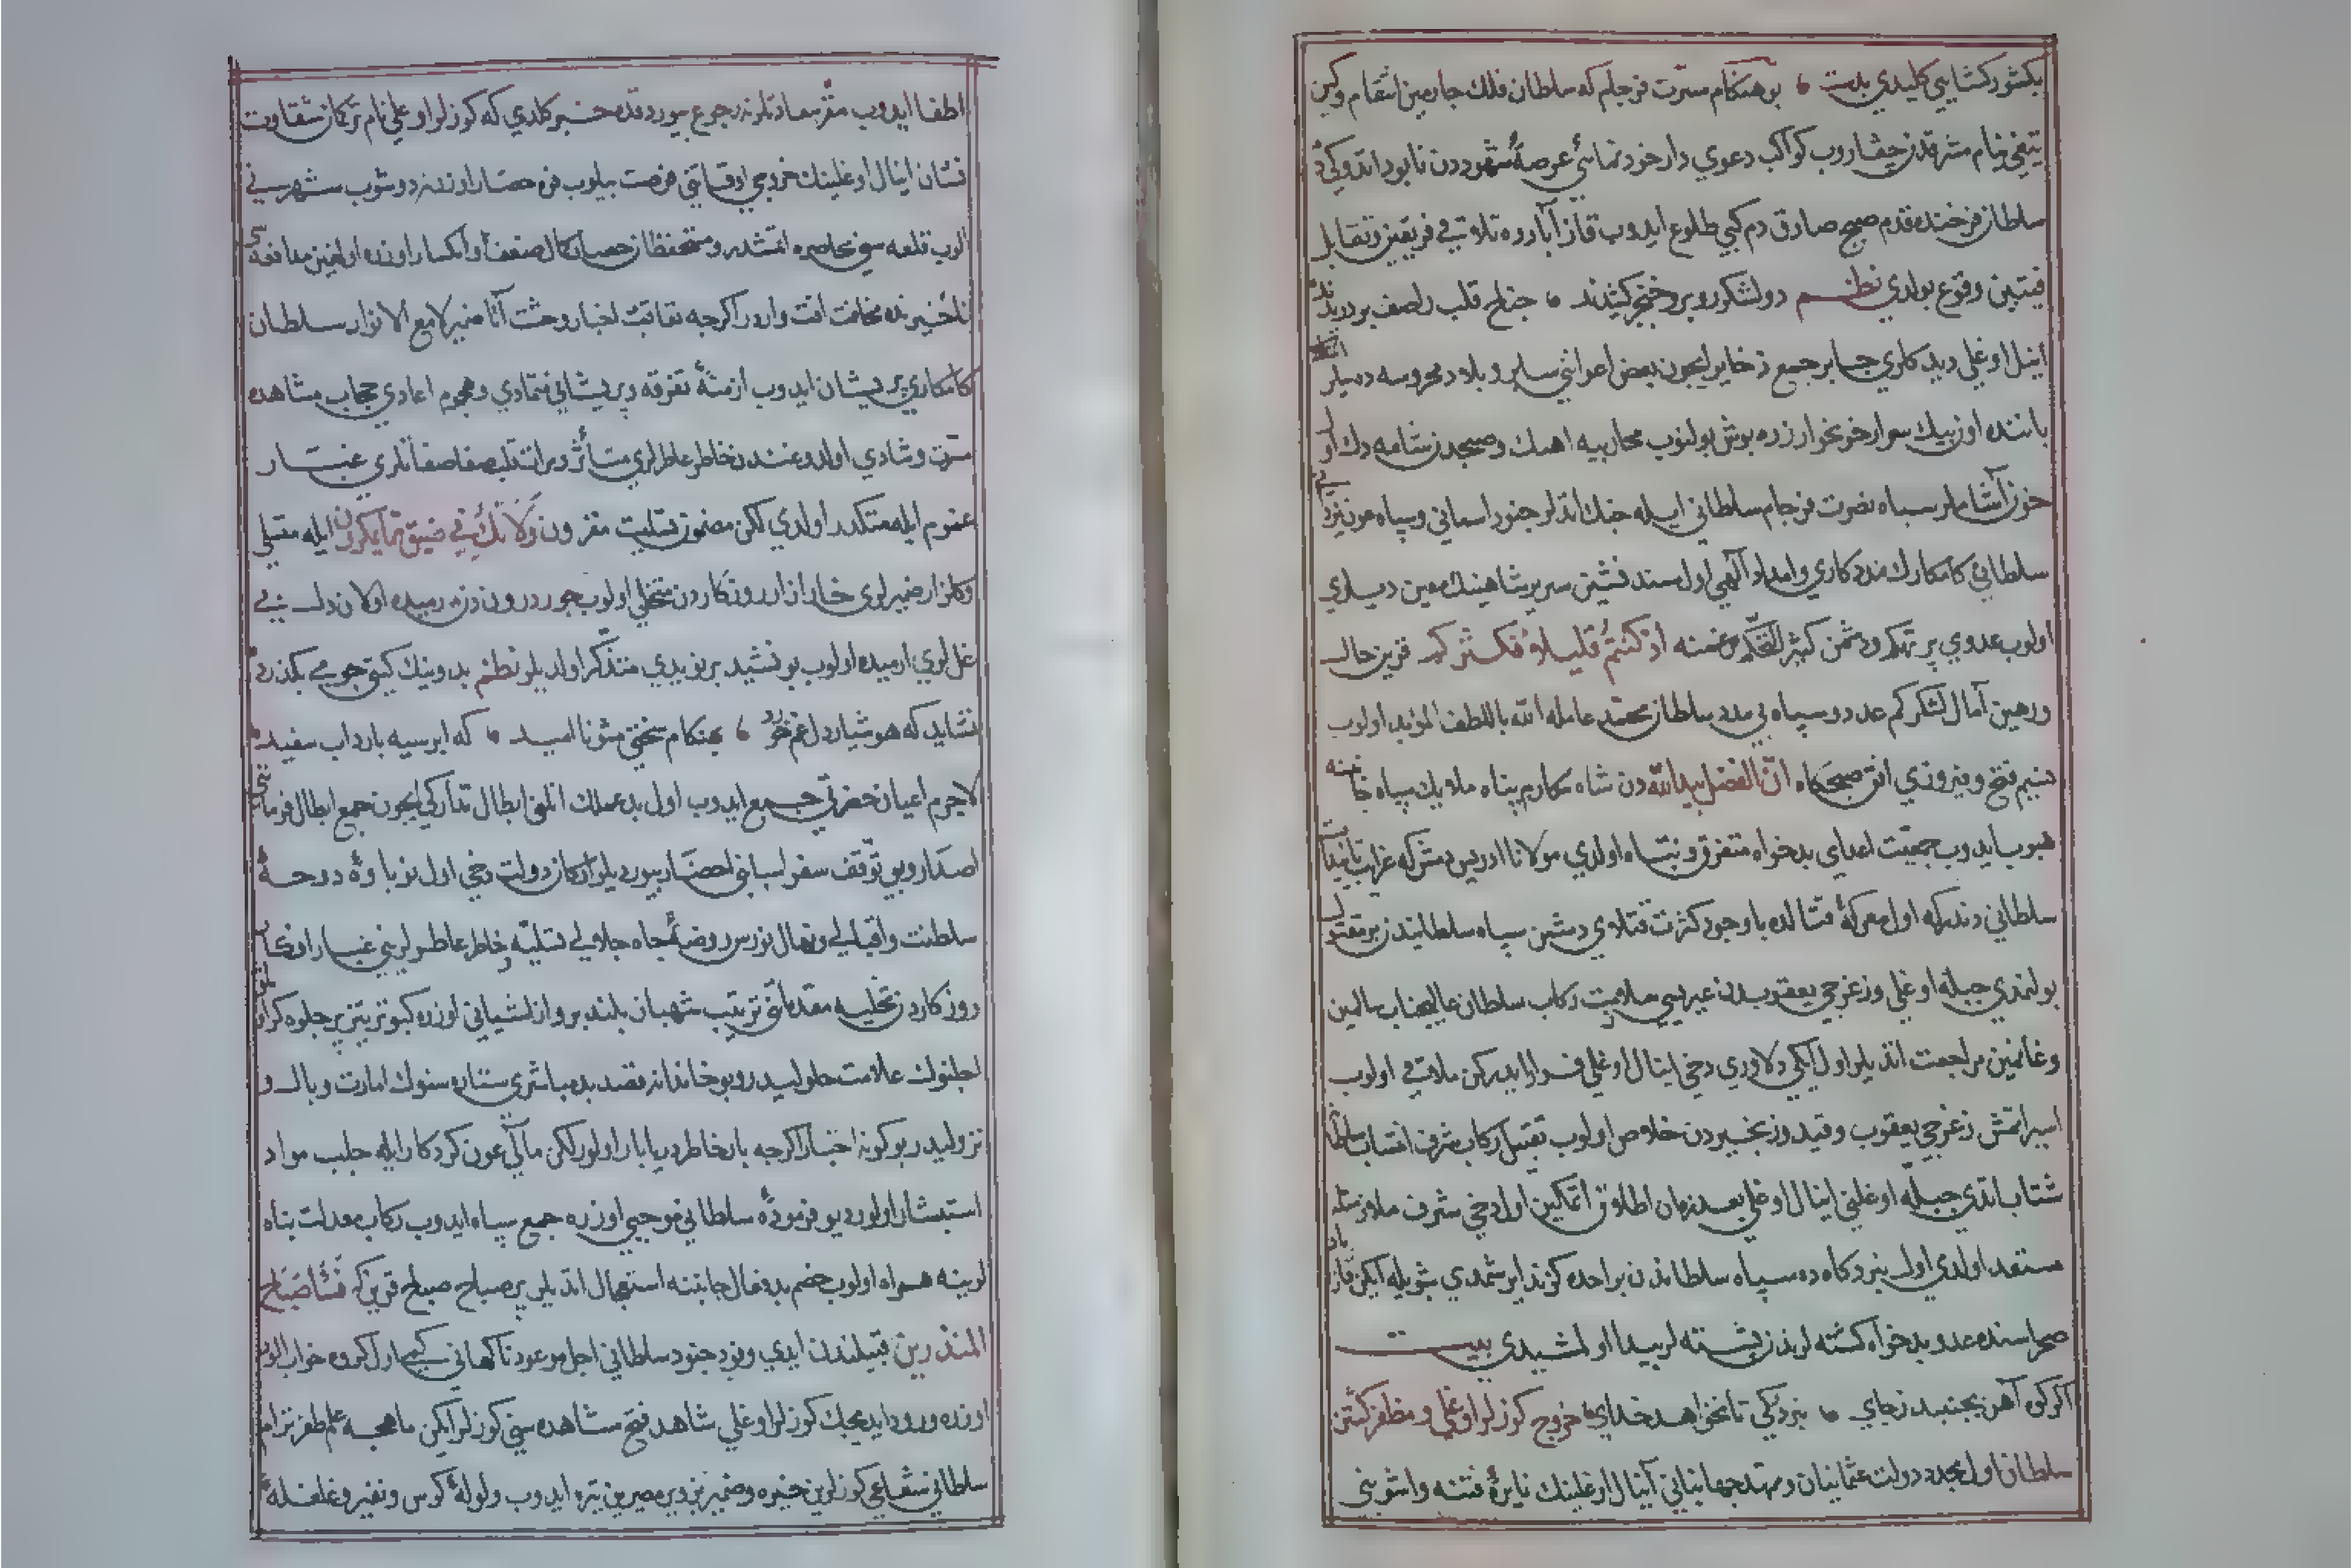 بكشور كشايي كليدي بدست ؞ بو هنكام مسرت فرجام كه سلطان فلك چارمين انتقام وكين
تيغني نيام مشرقدن چقاروب كواكب دعوي دار خود نمائي عرصهٔ شهوددن نابود اتدوكي
سلطان فرخنده قدم صبح صادق دم كبي طلوع ايدوب قاز آباده تلاقئ فريقين وتقابل
فئتين وقوع بولدي نظم دو لشكر روبرو خنجر كشيدند ؞ جناح قلب را صف بر دريدند
اينال اوغلي ديدكلري جساير جمع ذخاير ايچون بعض اعواني ساير وبلاد محروسه ده سير
باننده اون بيك سوار خونخوار زره پوش بولنوب محاربيه اهنك وصبحدن شامه دك اول
خون آشاملر سپاه نصرت فرجام سلطاني ايله جنك اتديلر جنود اسماني وسپاه عون يزداني
سلطاني كامكارك مددكاري وامداد آلهي اول مسند نشين سرير شاهينك معين ديداري
اولوب عدوي پر تهكم ودشمن كثير التحكم ضمنه اذ كنتم قليلا فكثركم قرين حال
ورهين آمال لشكر كم عدد وسپاه بي مدد سلطان محمد عامله الله باللطف المؤيد اولوب
نسيم فتح وفيروزي افق صبحكاه انّ الفضل بيد الله دن شاه مكارم پناه ملايك سپاه جانبنه
هبوب ايدوب جمعيت اعداي بدخواه متفرق وتباه اولدي مولانا ادريس دمش كه غرايب تأييدات
سلطاني دندركه اول معركهٔ قتالده باوجود كثرت قتلاي دشمن سپاه سلطانيدن بر مقتول
بولنمدي جبله اوغلي وزغرجي يعقوبدن غيريسي ملازمت ركاب سلطان عاليجناب سالمين
وغانمين مراجعت اتديلر اول ايكي دلاوري دخي اينال اوغلي فرار ايدركن ملاقي اولوب
اسير اتمش زغرجي يعقوب وقيد وزنجيردن خلاص اولوب تقبيل ركاب شرف انتساب سلطانه
شتاب اتدي جبله اوغليني اينال اوغلي بعد زمان اطلاق اتمكين اول دخي شرف ملازمتله
مستعد اولدي اول نبردكاه ده سپاه سلطاندن بر احده كزند ايرشمدي شويله ايكن قازاباد
صحراسنده عدو بدخواه كشته لرندن پشته لر پيدا اولمشيدي بيت
اكر كوه آهن بجنبد زجاي ؞ نبرد كي تا نخواهد خداي ؞ خروج كوزلر اوغلي ومظفر كشتن
سلطان اول مجدد دولت عثمانيان ومهتد جهانباني اينال اوغلينك نايرهٔ فتنه واشوبني
اطفا ايدوب مقر سعادتلرنه رجوع بيوردقده خبر كلدي كه كوزلر اوغلي نام تركمان شقاوت
نشان اينال اوغلينك خروجي اوقاتني فرصت بيلوب قره حصار اوزرنه دوشوب شهرسني
الوب قلعه سني محاصره اتمشدر ومتحفظان حصار كمال ضعف وانكسار اوزره اولغين مدافعه سي
تاخيرنده مخافت آفت واردر اكرچه تعاقب اخبار وحشت آثار ضمير لامع الانوار سلطان
كامكاري پريشان ايدوب ازمنهٔ تفرقه وپريشاني متمادي وهجوم اعادي حجاب مشاهده
مسرت وشادي اولدوغندن خاطر عاطرلري متأثر ومرات قلب صفا صفاتلري غبار
غموم ايله متكدر اولدي لكن مضمون تسليت مقرون ولا تك في ضيق مما يمكرون ايله متسلي
وكلزار ضميرلري خار ازار روزكاردن متخلي اولوب جور درون دن رميده اولان دل بي
غللري ارميده اولوب بو نشيد پر نويدي متذكر اولديلر نظم بد ونيك كيتي چو مي بكذرد
نشايد كه هوشيار دل غم خورد ؞ بهنكام سختي مشو نا اميد ؞ كه ابر سيه بارد اب سفيد
لاجرم اعيان حضرتي جمع ايدوب اول بد عملك اتلافي ابطال تداركي ايچون جمع ابطال فرماني
اصدار وبي توقف سفر اسبابني احضار بيورديلر اركان دولت دخي اول نو باوهٔ دوحهٔ
سلطنت واقبالي ونهال نورس روضهٔ جاه جلالي تسليه خاطر عاطرلريني غبار افكار
روزكاردن تخليه مقدماتني ترتيب شهبان بلند پرواز آشياني اوزره كبوتر تيز پر جلوه كر اولمق
اجلنوك علامت حلوليدر وبو خاندانه قصد بد مباشري ستان سنوك امارت وبال و
نزوليدر بو كونه اخبار اكرچه بار خاطر دريا بار اولور لكن مآلي عون كردكار ايله جلب مواد
استبشار اولور ديو فرمودهٔ سلطاني موجبي اوزره جمع سپاه ايدوب ركاب معدلت پناه
لرينه همراه اولوب خصم بدفعال جانبنه استعجال اتديلر پر صباح صباح قرينكه فساء صباح
المنذرين قبيلندن ايدي ورود جنود سلطاني اجل موعود ناكهاني كبي اول كروه خواب الود
اوزره ورود ايديجك كوزلر اوغلي شاهد فتح مشاهده سني كوزلر ايكن ماهچه علم ظفر توأم
سلطاني شعاعي كوزلرين خيره وضمير بي بصيرين تيره ايدوب ولولهٔ كوس ونفير وغلغلهٔ